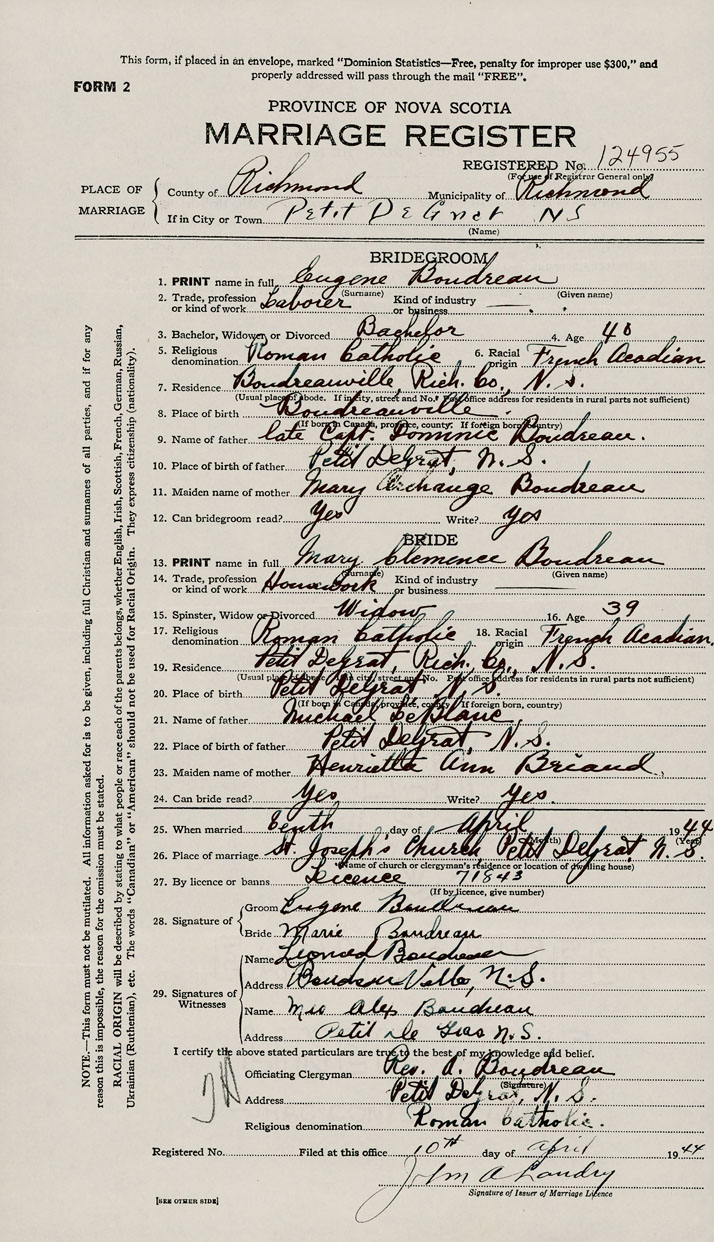 This form, if placed in an envelope, marked "Dominion Statistics—Free, penalty for improper use $300," and
properly addressed will pass through the mail "FREE".
FORM 2
PROVINCE OF NOVA SCOTIA
MARRIAGE REGISTER
REGISTERED No. 124955
(For use of Registrar General only)
PLACE OF MARRIAGE
County of Richmond Municipality of Richmond
If in City or Town Petit De Grat NS
(Name)
BRIDEGROOM
1. PRINT name in full Eugene Boudreau
(Surname) (Given name)
2. Trade, profession or kind of work Laborer Kind of industry or business
3. Bachelor, Widower or Divorced Bachelor 4. Age 48
5. Religious denomination Roman Catholic 6. Racial origin French Acadian
7. Residence Boudreauville, Rich. Co., N. S.
(Usual place of abode. If in city, street and No. Post office address for residents in rural parts not sufficient)
8. Place of birth Boudreauville
(If born in Canada, province, county. If foreign born, country)
9. Name of father late Capt. Dominic Boudreau.
10. Place of birth of father Petit Degrat, N. S.
11. Maiden name of mother Mary Archange Boudreau
12. Can bridegroom read? Yes Write? Yes
BRIDE
13. PRINT name in full Mary Clemence Boudreau
(Surname) (Given name)
14. Trade, profession or kind of work Housework Kind of industry or business
15. Spinster, Widow or Divorced Widow 16. Age 39
17. Religious denomination Roman Catholic 18. Racial origin French Acadian.
19. Residence Petit Degrat, Rich. Co., N. S.
(Usual place of abode. If in city, street and No. Post office address for residents in rural parts not sufficient)
20. Place of birth Petit Degrat, N. S.
(If born in Canada, province, county. If foreign born, country)
21. Name of father Michael LeBlanc
22. Place of birth of father Petit Degrat, N. S.
23. Maiden name of mother Henrietta Ann Briand.
24. Can bride read? Yes Write? Yes.
25. When married Tenth day of April 1944
(Month) (Year)
26. Place of marriage St. Joseph's Church, Petit Degrat, N. S.
(Name of church or clergyman's residence or location of dwelling house)
27. By licence or banns Licence 71843
(If by licence, give number)
28. Signature of
Groom Eugene Boudreau
Bride Marie Boudreau
29. Signatures of Witnesses
Name Leonard Boudreau
Address N. S.
Name Mrs Alex Boudreau
Address Petit de Gras N. S.
I certify the above stated particulars are true to the best of my knowledge and belief.
Officiating Clergyman Rev. A. Boudreau
(Signature)
Address Petit Degrat, N. S.
Religious denomination Roman Catholic.
Registered No. Filed at this office 10TH day of April 1944
John A Landry
Signature of Issuer of Marriage Licence
[SEE OTHER SIDE]
NOTE.—This form must not be mutilated. All information asked for is to be given, including full Christian and surnames of all parties, and if for any
reason this is impossible, the reason for the omission must be stated.
RACIAL ORIGIN will be described by stating to what people or race each of the parents belongs, whether English, Irish, Scottish, French, German, Russian,
Ukrainian (Ruthenian), etc. The words "Canadian" or "American" should not be used for Racial Origin. They express citizenship (nationality).